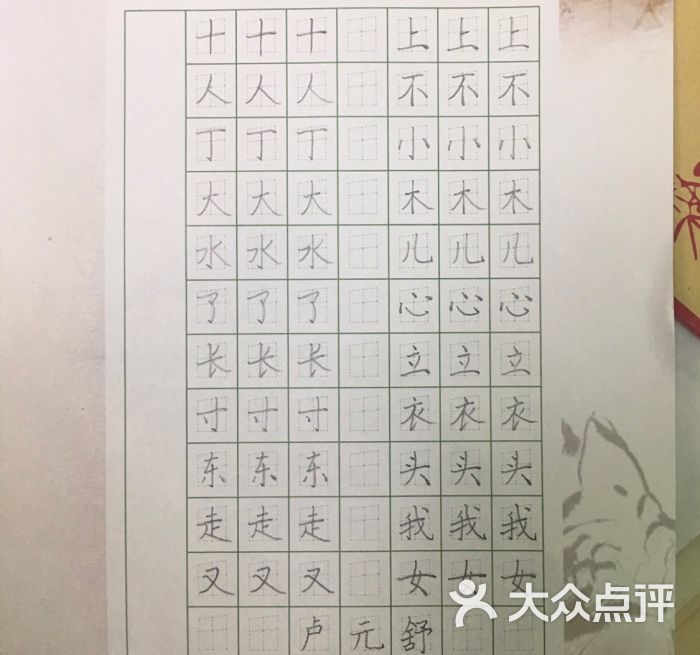 十十十 上上上
人人人 不不不
丁丁丁 小小小
大大大 木木木
水水水 儿儿儿
了了了 心心心
长长长 立立立
寸寸寸 衣衣衣
东东东 头头头
走走走 我我我
又又又 女女女
卢元舒
大众点评